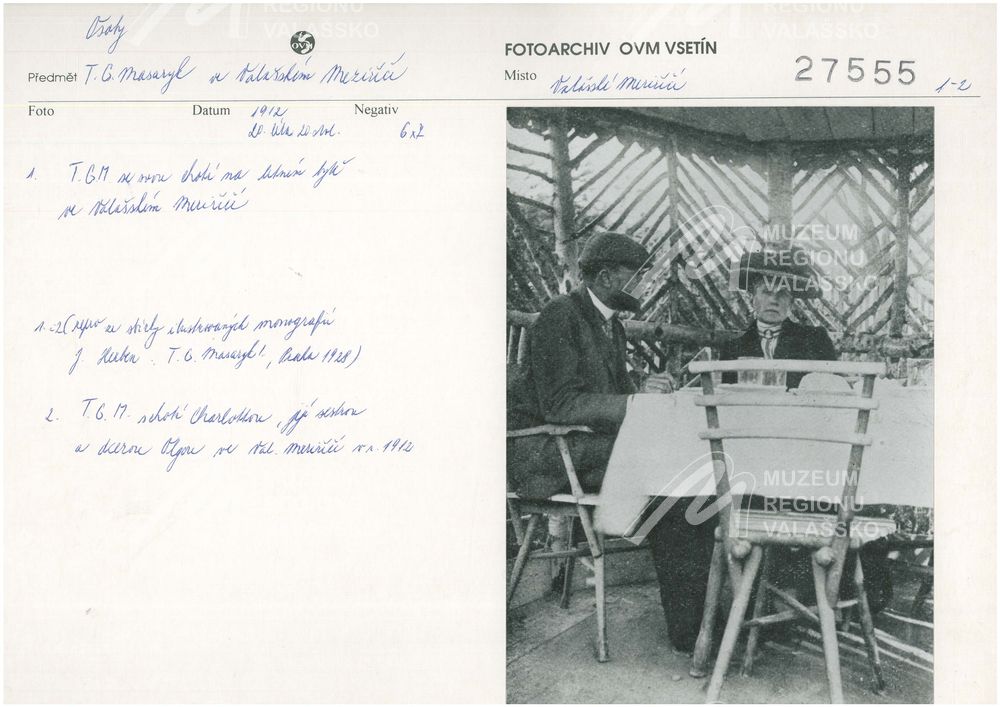 Osoby
OVM
Předmět T. G. Masaryk ve Valašském Meziříčí
FOTOARCHIV OVM VSETÍN
Místo Valašské Meziříčí
27555
1-2
Foto Datum 1912 Negativ
20. léta 20. stol. 6x7
1. T.G.M se svou chotí na letním bytě
ve Valašském Meziříčí
1.-2 (repro ze ilustrovaných monografií
J. Herben : T. G. Masaryk, Praha 1928)
2. T.G.M. s chotí Charlottou, její sestrou
a dcerou Olgou ve Val. Meziříčí v r. 1912
MUZEUM
REGIONU
VALAŠSKO
MUZEUM
REGIONU
VALAŠSKO
MUZEUM
REGIONU
VALAŠSKO
MUZEUM
REGIONU
VALAŠSKO